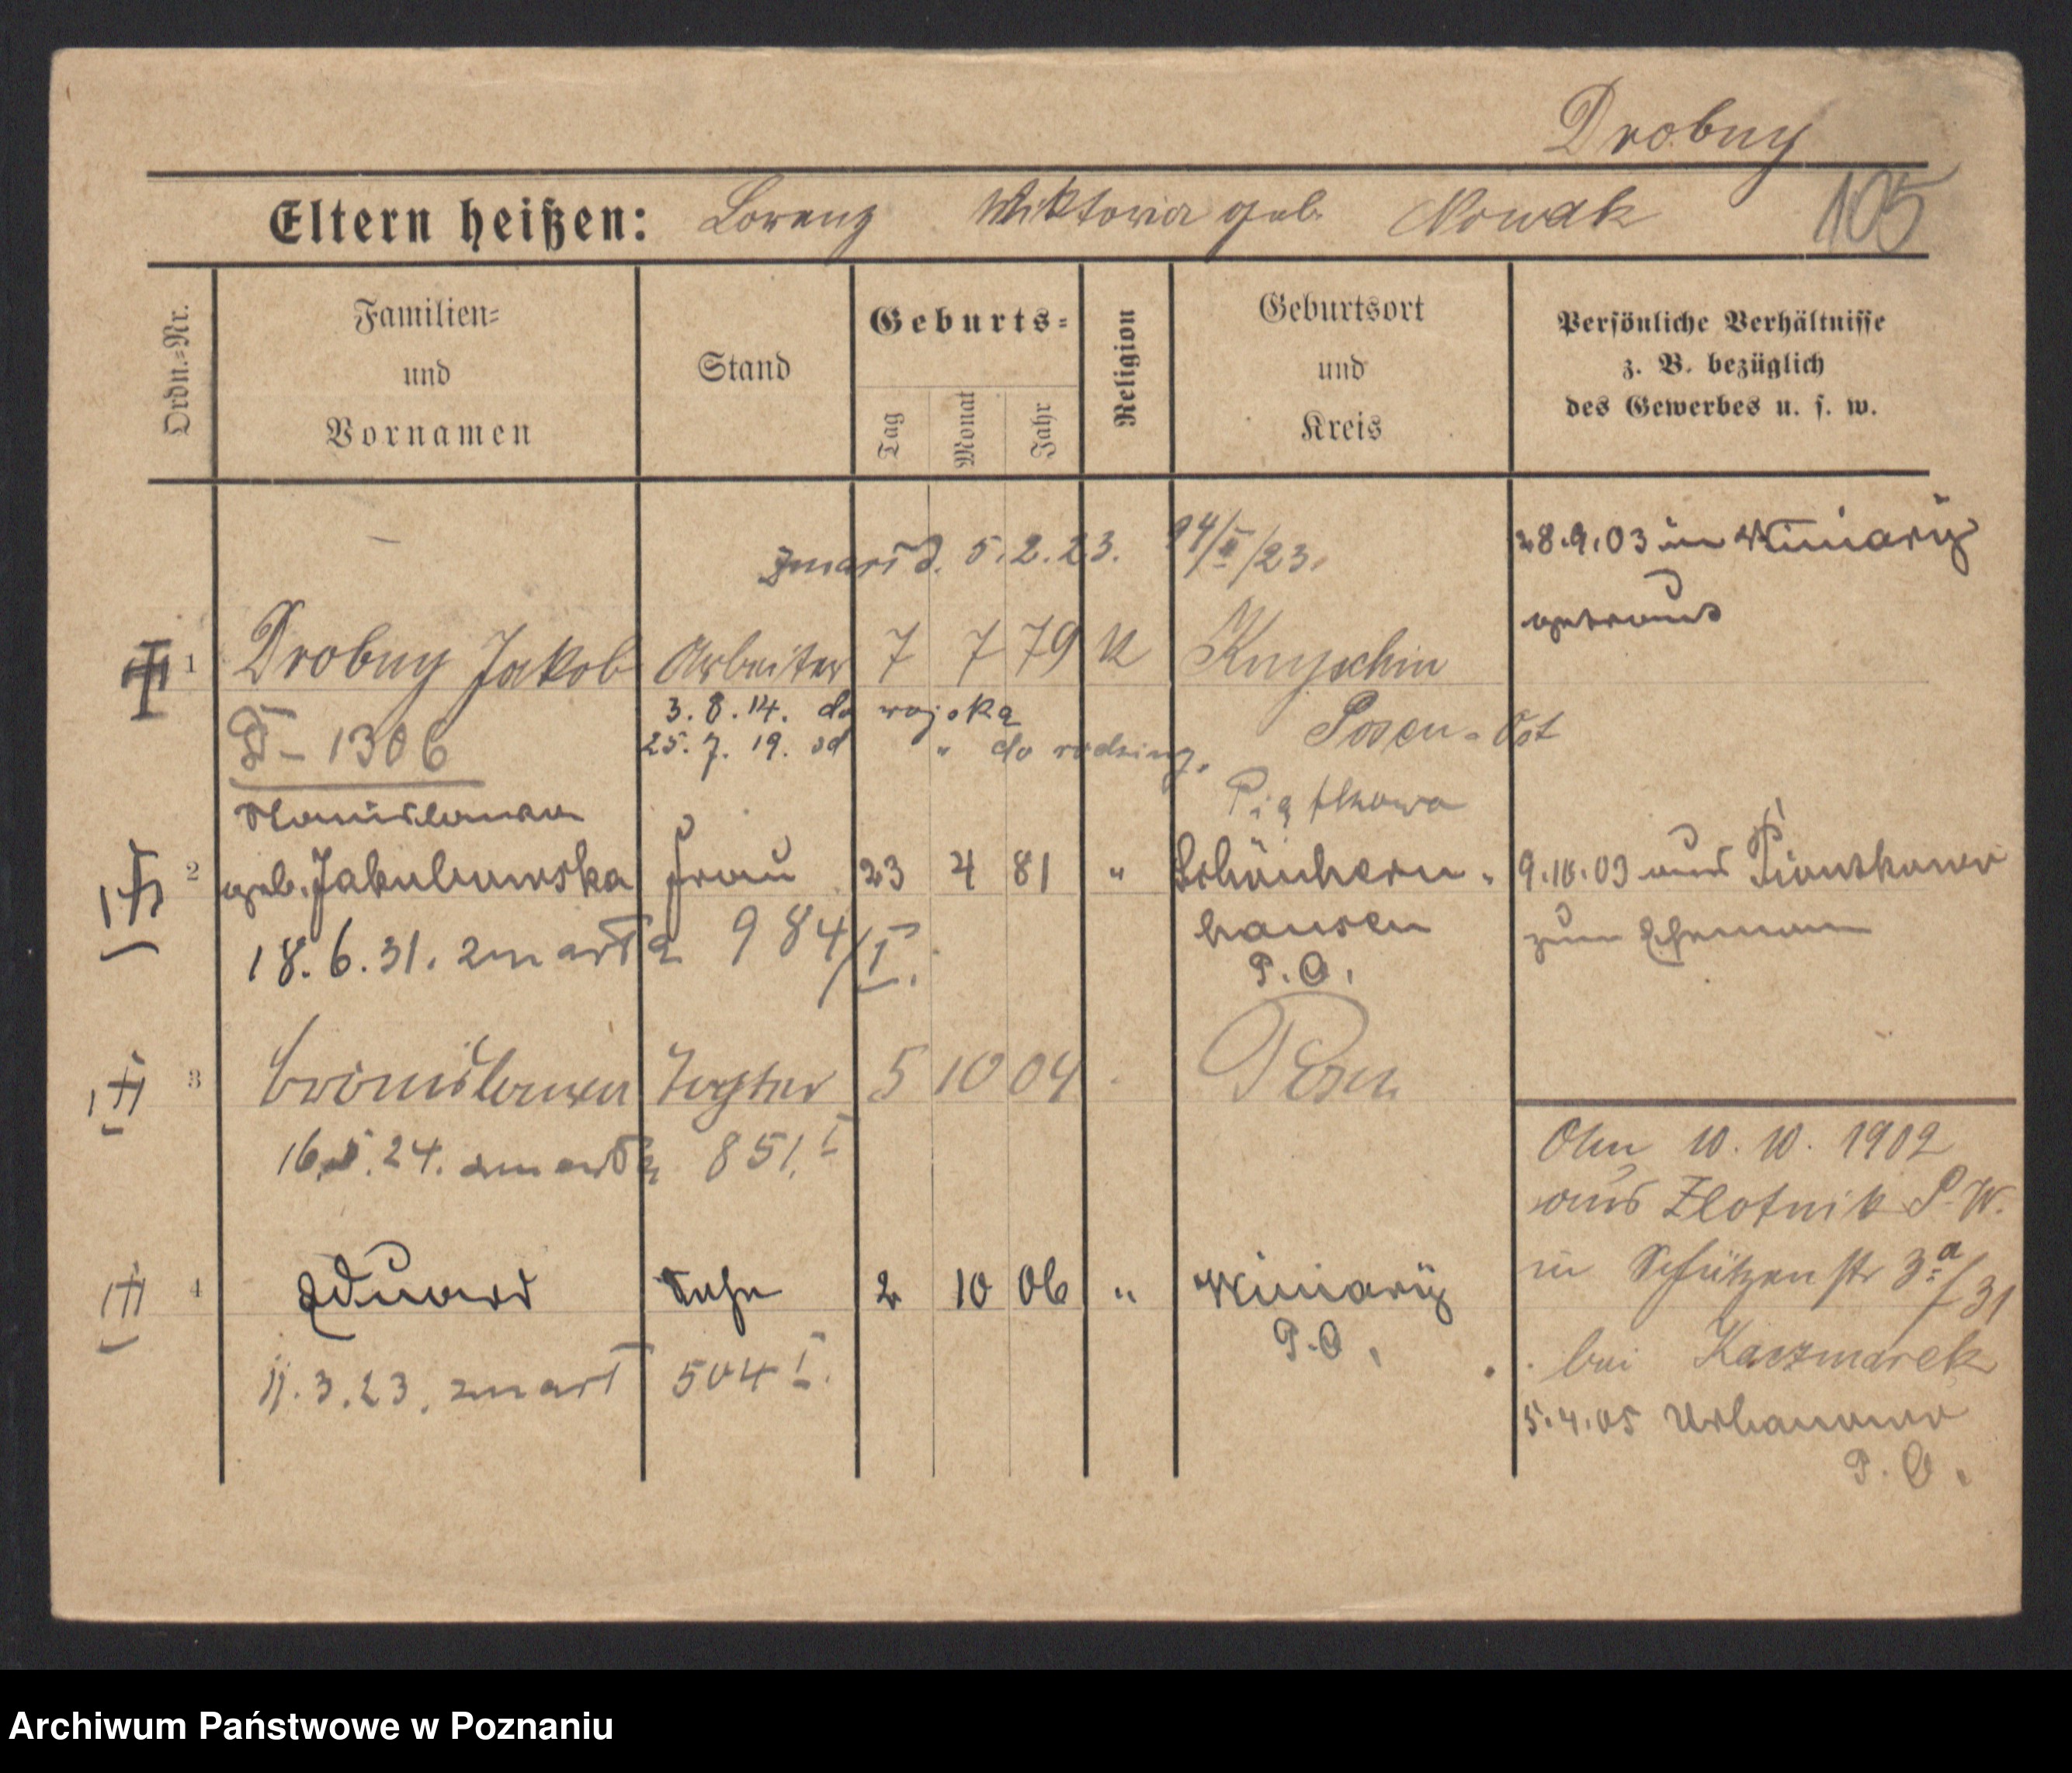 Drobny
Eltern heißen: Lorenz Wiktoria geb. Nowak 105
Ordn.-Nr.
Familien-
und
Vornamen
Stand
Geburts-
Tag
Monat
Jahr
Religion
Geburtsort
und
Kreis
Persönliche Verhältnisse
z. B. bezüglich
des Gewerbes u. s. w.
zmarł d. 5.2.23.
28.9.03 in Winiary
getraut
1 Drobny Jakob Arbeiter 7 7 79 K
3.8.14. do wojska
25.7.19. od " do rodziny.
Posen-Ost
1306
Piątkowo
Stanislawa
2 geb. Jakubowska Frau 23 4 81 " Schönhern-
hausen
P.O.
9.10.03 aus Piontkowo
zum Ehemann
18.6.31. zmarła 984/I.
3 Bronislawa Tochter 5 10 04 Posen
24. zmarła 851.I
4 Eduard Sohn 2 10 06 " Winiary
P.O.
11.3.23. zmarł 504 I.
10. 10. 1902
aus Zlotnik P.W.
in Schützenstr 3a/31
bei Kaczmarek
5.4.05 Urbanowo
P.O.
Archiwum Państwowe w Poznaniu